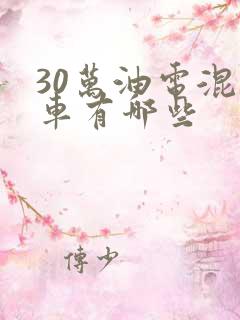 30萬油電混
車有哪些
傅少